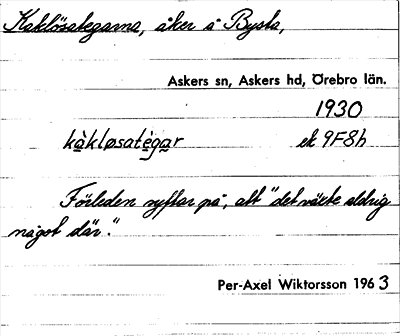 Kaklösategarna, åker å Bysta,
Askers sn, Askers hd, Örebro län.
1930
kàkløsatègar ek 9F8h
Förleden syftar på, att "det växte aldrig
något där."
Per-Axel Wiktorsson 1963